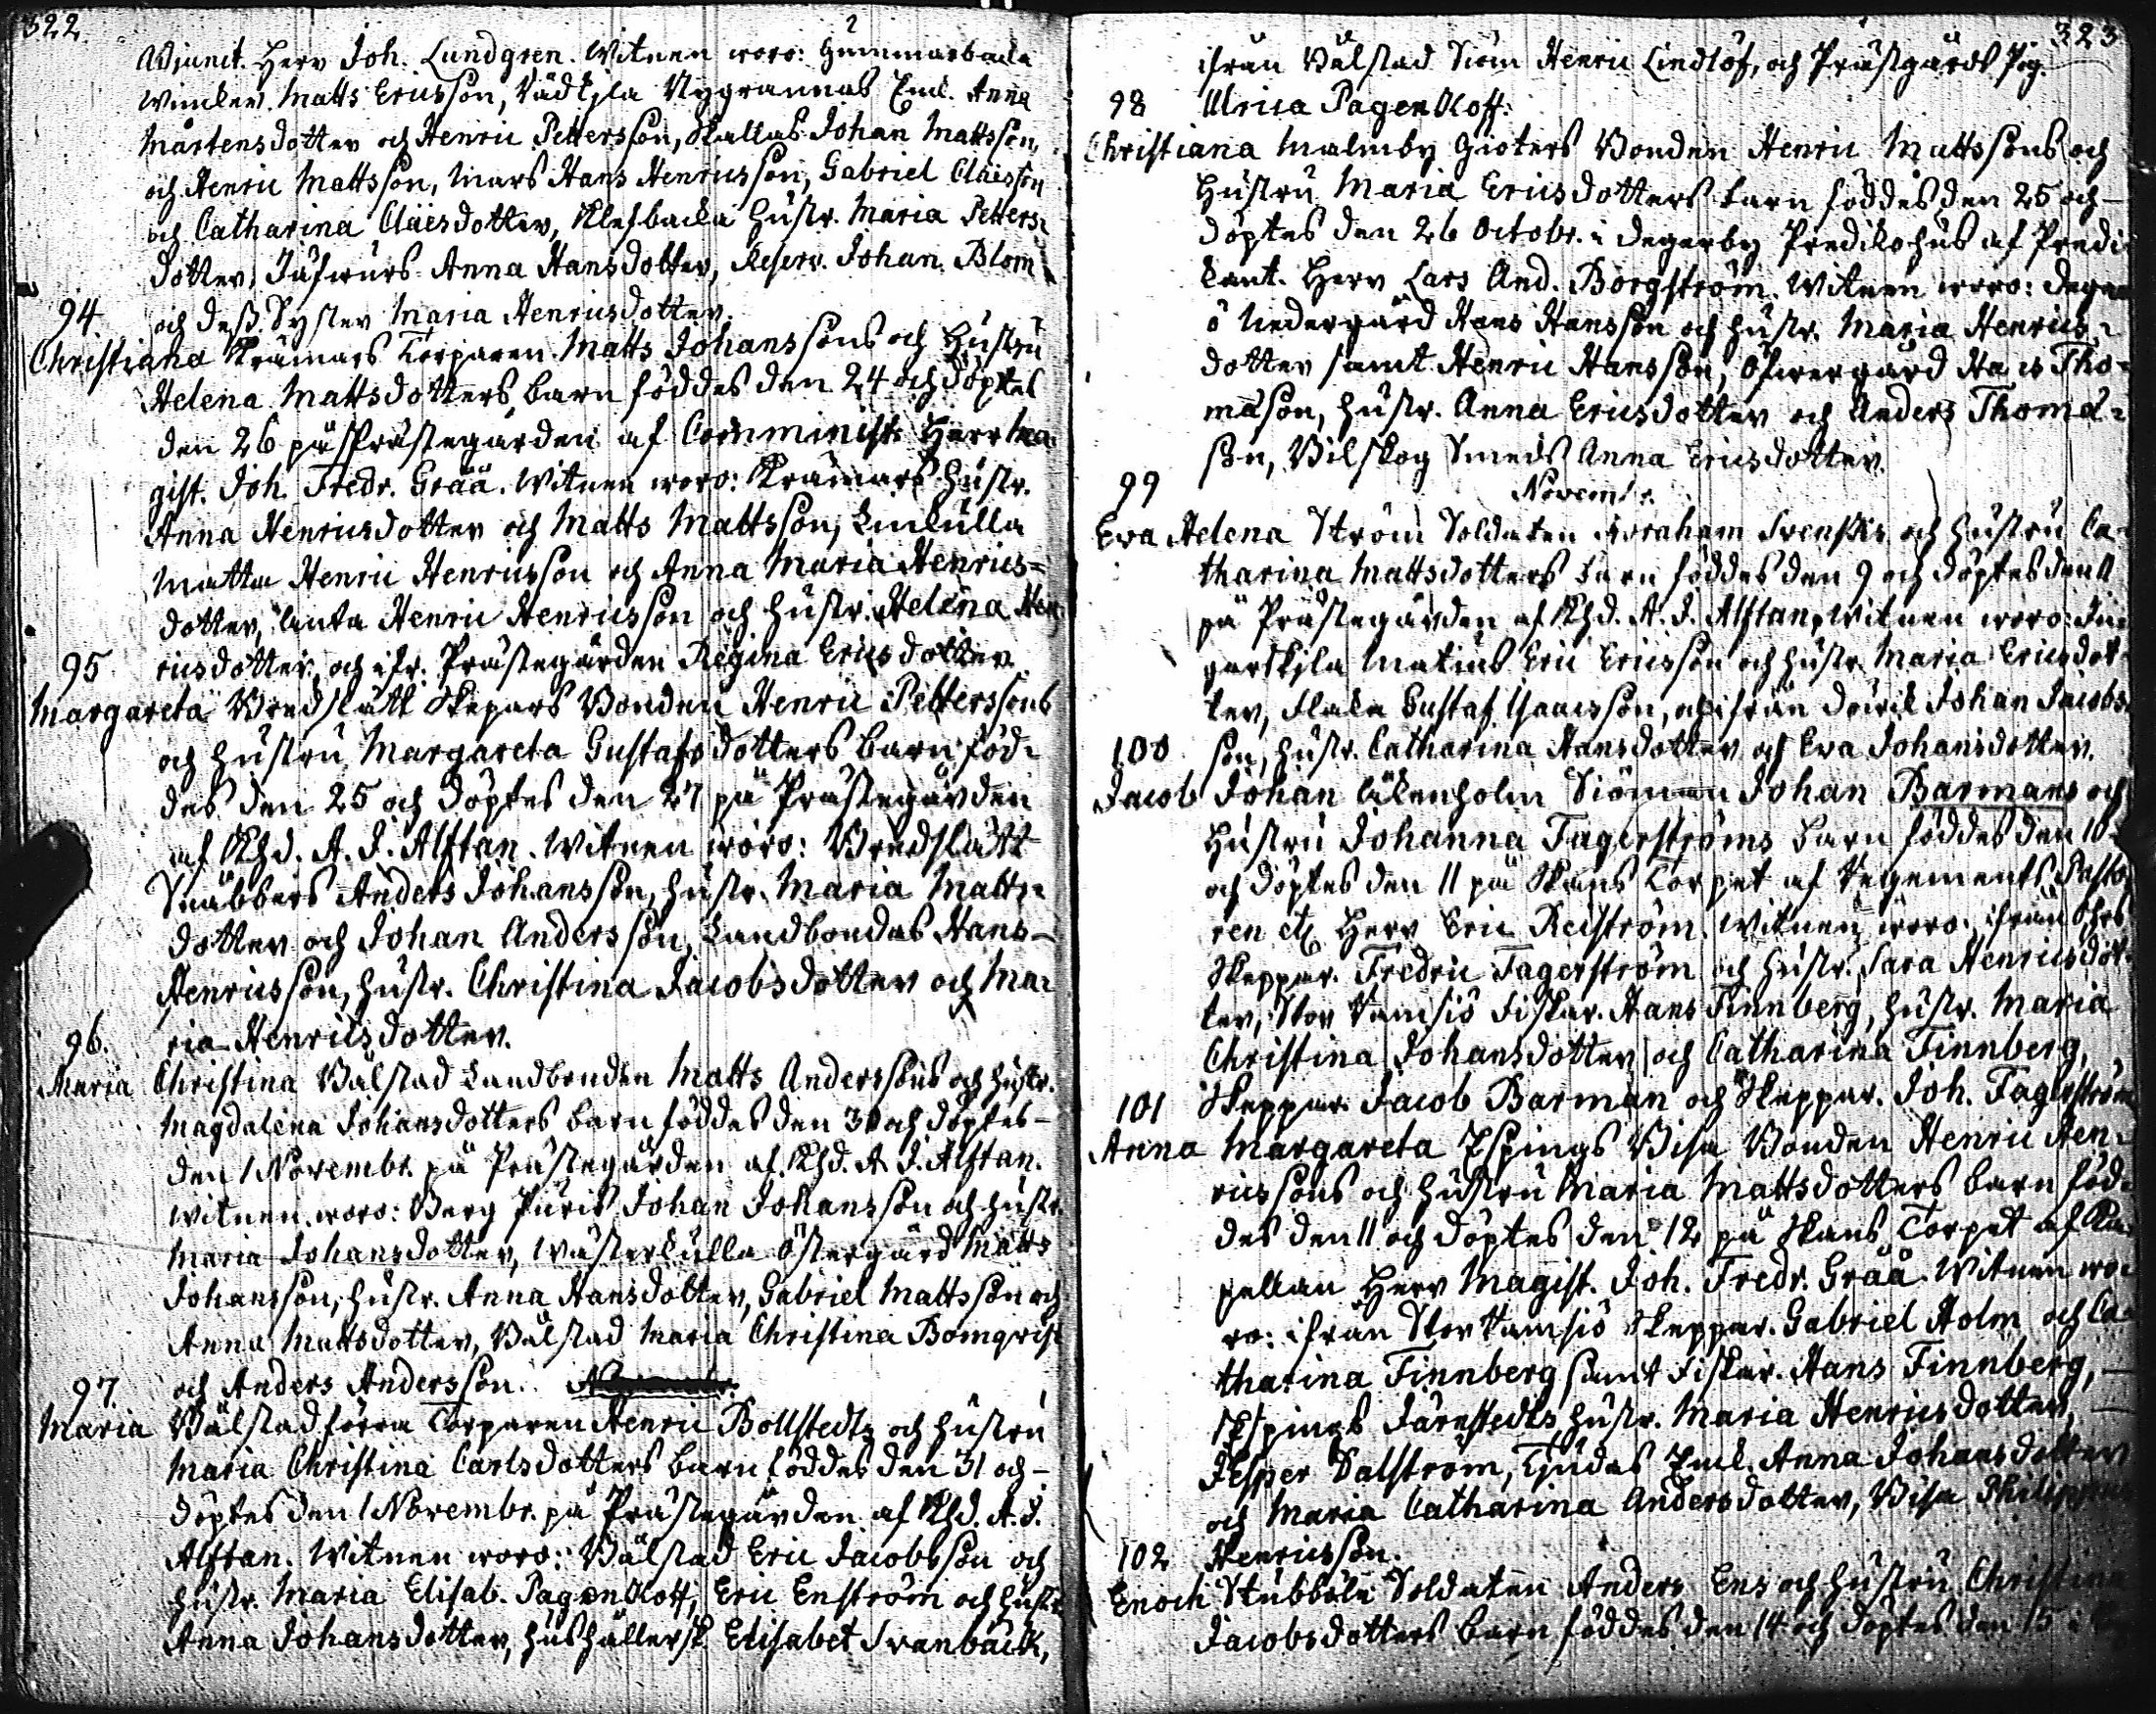 322.
Adjunct. Herr Joh. Lundgren. Witnen woro: Gummarbacka
Matts Ericsson, Nygrannas Enk. Anna
Mårtensdotter och Henric Pettersson, Skallas Johan Mattsson,
och Henric Mattsson, Mars Hans Henricsson, Gabriel Claësson
och Catharina Claësdotter, Klefbacka Hustr. Maria Petters-
dotter, Anna Hansdotter, Reserv. Johan Blom
och dess Syster Maria Henricsdotter.
94.
Christiana Krämars Torparen Matts Johanssons och Hustru
Helena Mattsdotters barn föddes den 24 och döptes
den 26 på Prästegården af Comminist. Herr Ma-
gist. Joh. Fredr. Grää. Witnen woro: Krämars Hustr.
Anna Henricsdotter och Matts Mattsson, Linkulla
Matta Henric Henricsson och Anna Maria Henrics-
dotter, Henric Henricsson och Hustr. Helena Hen-
ricsdotter, och ifr. Prästegården Regina Ericsdotter.
95
Margareta Vredslätt Skepars Bonden Henric Petterssons
och Hustru Margareta Gustafsdotters barn föd-
des den 25 och döptes den 27 på Prästegården
af Khd. A. J. Alftan. Witnen woro: Vredslätt
Snäbbers Anders Johansson, Hustr. Maria Matts-
dotter och Johan Andersson, Landbondas Hans
Henricsson, Hustr. Christina Jacobsdotter och Ma-
ria Henricsdotter.
96.
Maria Christina Välstad Landbonden Matts Anderssons och Hustr.
Magdalena Johansdotters barn föddes den 30 och döptes
den 1 Novembr. på Prästegården af Khd. A. J. Alftan.
Witnen woro: Berg Puris Johan Johansson och Hustr.
Maria Johansdotter, Wästerkulla Östergård Matts
Johansson, Hustr. Anna Hansdotter, Gabriel Mattsson och
Anna Mattsdotter, Välstad Maria Christina Bomqvist
och Anders Andersson.
97.
Maria Välstad förra Torparen Henric Bollstedts och Hustru
Maria Christina Carlsdotters barn föddes den 31 och
döptes den 1 Novembr. på Prästegården af Khd. A. J.
Alftan. Witnen woro: Välstad Eric Jacobsson och
Hustr. Maria Elisab. Pagenkoff, Eric Enström och Hustr.
Anna Johansdotter, Hushållersk. Elisabet Svanbäck,
323
ifrån Välstad Siöm Henric Lindlöf, och Prästgårds Pig.
98 Ulrica Pagenkoff.
Christiana Malmby Gioters Bonden Henric Mattssons och
Hustru Maria Ericsdotters barn föddes den 25 och
döptes den 26 Octobr. i Degerby Prediкohus af Predi-
kant. Herr Lars And. Borgström. Witnen woro: Deger-
ö Nedergård Hans Hansson och Hustr. Maria Henrics-
dotter samt Henric Hansson, Öfvergård Hans Tho-
mason, Hustr. Anna Ericsdotter och Anders Thoma-
son, Vilskog Smeds Anna Ericsdotter.
99 Novembr.
Eva Helena Ström Soldaten Abraham Svenskis och Hustru Ca-
tharina Mattsdotters barn föddes den 9 och döptes den 11
på Prästegården af Khd. A. J. Alftan, Witnen woro:
Matius Eric Ericsson och Hustr. Maria Ericsdot-
ter, Flaka Gustaf Isaacsson, och ifrån Johan Jacobs-
100 son, Hustr. Catharina Hansdotter och Eva Johansdotter.
Jacob Johan Siöman Johan Barmans och
Hustru Johanna Fagerströms barn föddes den 10
och döptes den 11 på Skans Torpet af Regements Pasto-
ren etc Herr Eric Reiström. Witnen woro: ifrån
Skeppar. Fredric Fagerström och Hustr. Sara Henricsdot-
ter, Stor Ramsiö Fiskar. Hans Finnberg, Hustr. Maria
Christina Johansdotter och Catharina Finnberg,
101 Skeppar. Jacob Barman och Skeppar. Joh. Fagerström
Anna Margareta Espings Visa Bonden Henric Hen-
ricssons och Hustru Maria Mattsdotters barn föd-
des den 11 och döptes den 12 på Skans Torpet af Ka-
pellan Herr Magist. Joh. Fredr. Grää. Witnen wo-
ro: ifrån Stor Ramsiö Skeppar. Gabriel Holm och Ca-
tharina Finnberg samt Fiskar. Hans Finnberg,
Espings Järnstedts Hustr. Maria Henricsdotter,
Jesper Salström, Tjudas Enk. Anna Johansdotter
och Maria Catharina Andersdotter, Visa
102 Henricsson.
Enoch Stubböle Soldaten Anders Ens och Hustru Christina
Jacobsdotters barn föddes den 14 och döptes den 15 i